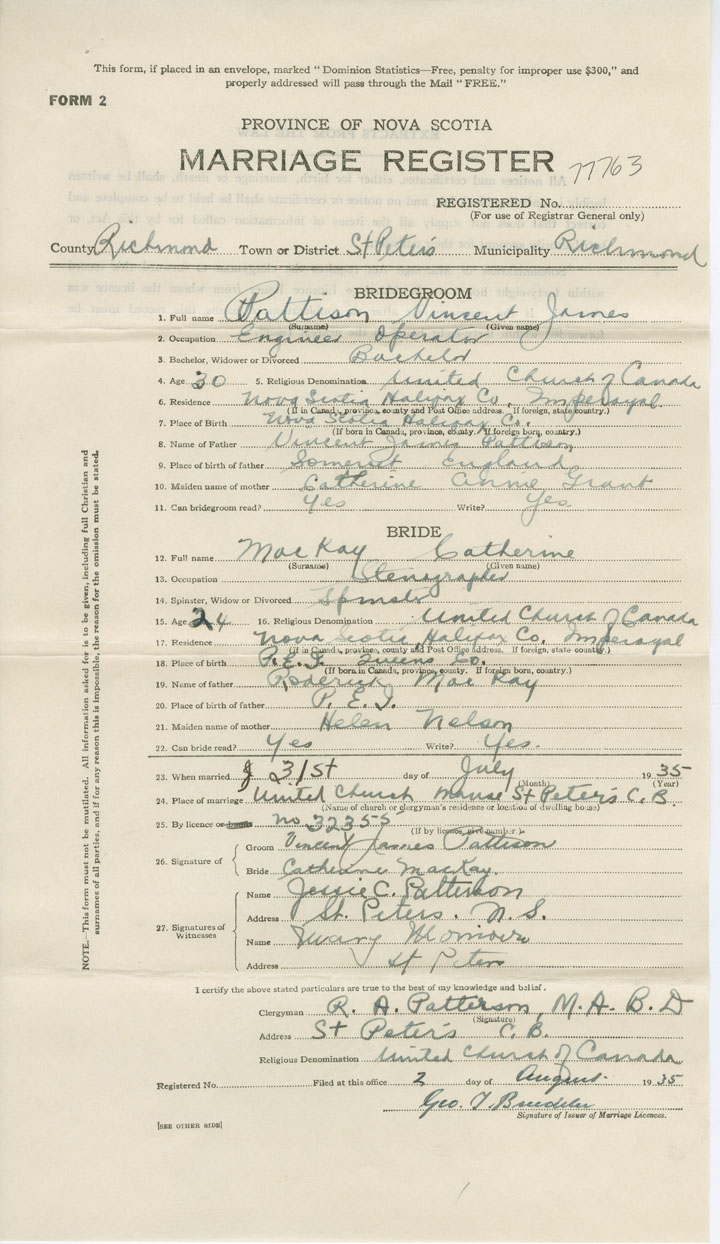 This form, if placed in an envelope, marked "Dominion Statistics—Free, penalty for improper use $300," and
properly addressed will pass through the Mail "FREE."
FORM 2
PROVINCE OF NOVA SCOTIA
MARRIAGE REGISTER 77763
REGISTERED No.
(For use of Registrar General only)
County Richmond Town or District St Peter's Municipality Richmond
BRIDEGROOM
1. Full name Pattison Vincent James
(Surname) (Given name)
2. Occupation Engineer Operator
3. Bachelor, Widower or Divorced Bachelor
4. Age 30 5. Religious Denomination United Church of Canada
6. Residence Nova Scotia Halifax Co. Imperoyal
(If in Canada, province, county and Post Office address. If foreign, state country.)
7. Place of Birth Nova Scotia Halifax Co.
(If born in Canada, province, county. If foreign born, country.)
8. Name of Father Vincent James Pattison
9. Place of birth of father Somerset England
10. Maiden name of mother Catherine Anne Grant
11. Can bridegroom read? Yes Write? Yes
BRIDE
12. Full name MacKay Catherine
(Surname) (Given name)
13. Occupation Stenographer
14. Spinster, Widow or Divorced Spinster
15. Age 24 16. Religious Denomination United Church of Canada
17. Residence Nova Scotia Halifax Co. Imperoyal
(If in Canada, province, county and Post Office address. If foreign, state country.)
18. Place of birth P.E.I. Queens Co.
(If born in Canada, province, county. If foreign born, country.)
19. Name of father Roderick MacKay
20. Place of birth of father P. E. I.
21. Maiden name of mother Helen Nelson
22. Can bride read? Yes Write? Yes.
23. When married 31st day of July 1935
(Month) (Year)
24. Place of marriage United Church Manse St Peter's C.B.
(Name of church or clergyman's residence or location of dwelling house)
25. By licence or no 32355
(If by licence, give number.)
26. Signature of
Groom Vincent James Pattison
Bride Catherine MacKay.
27. Signatures of Witnesses
Name Jessie C. Patterson
Address St. Peters. N.S.
Name
Address St Peters
I certify the above stated particulars are true to the best of my knowledge and belief.
Clergyman R. A. Patterson, M.A. B.D
(Signature)
Address St Peter's C.B.
Religious Denomination United Church of Canada
Registered No. Filed at this office 2 day of August. 1935
Geo. T.
Signature of Issuer of Marriage Licences.
[SEE OTHER SIDE]
NOTE.—This form must not be mutilated. All information asked for is to be given, including full Christian and
surnames of all parties, and if for any reason this is impossible, the reason for the omission must be stated.